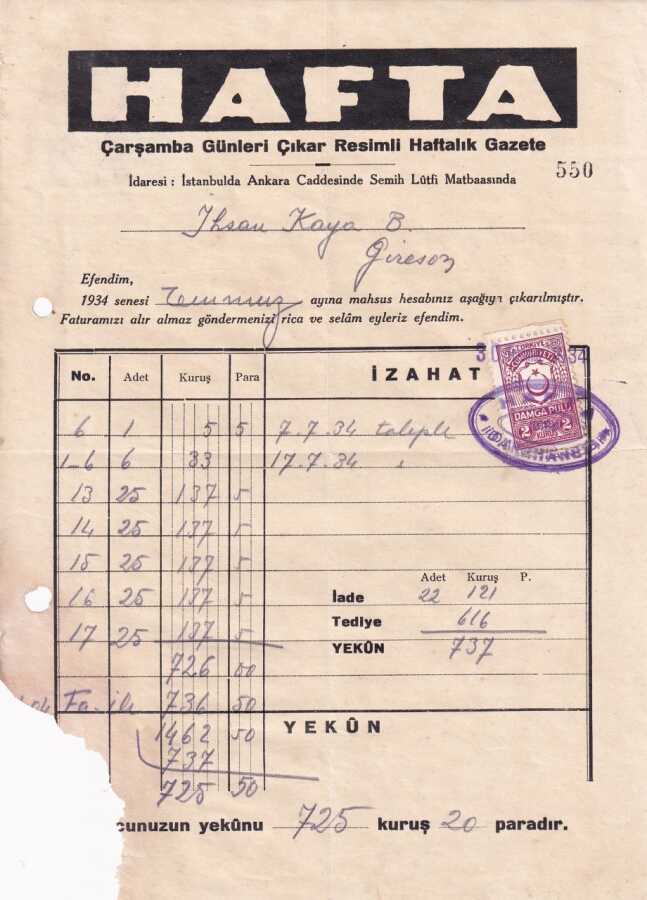 HAFTA
Çarşamba Günleri Çıkar Resimli Haftalık Gazete
550
İdaresi : İstanbulda Ankara Caddesinde Semih Lûtfi Matbaasında
İhsan Kaya B.
Gireson
Efendim,
1934 senesi Temmuz ayına mahsus hesabınız aşağıya çıkarılmıştır.
Faturamızı alır almaz göndermenizi rica ve selâm eyleriz efendim.
No. Adet Kuruş Para İZAHAT
TÜRKİYE
CUMHURİYETİ
DAMGA PULU
2 KURUŞ 2
6 1 5 5 7.7.34 taleple
1-6 6 33 17.7.34 "
13 25 137 5
14 25 137 5
15 25 137 5
16 25 137 5
17 25 137 5
Adet Kuruş P.
İade 22 121
Tediye 616
YEKÛN 737
726 50
736 50
YEKÛN
1462 50
737
725 50
cunuzun yekûnu 725 kuruş 20 paradır.